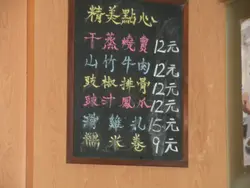 精美點心
干蒸燒賣 12元
山竹牛肉 12元
豉椒排骨 12元
豉汁鳳爪 12元
灣雞扎 15元
糯米卷 9元